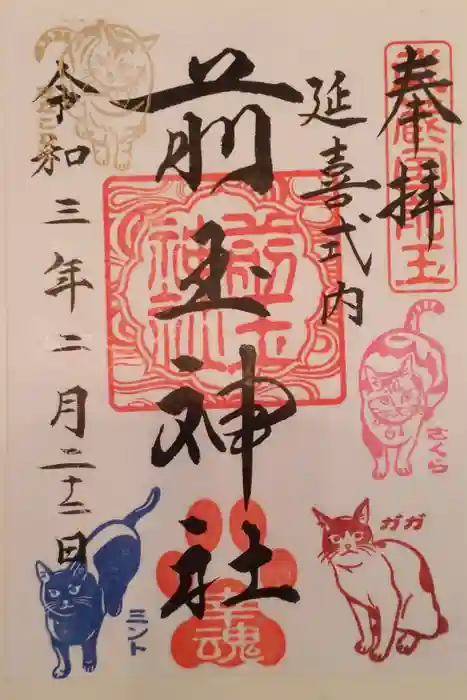 奉拝
延喜式内
前玉神社
令和三年二月二十二日
前玉神社
さくら
ガガ
ミント
幸魂